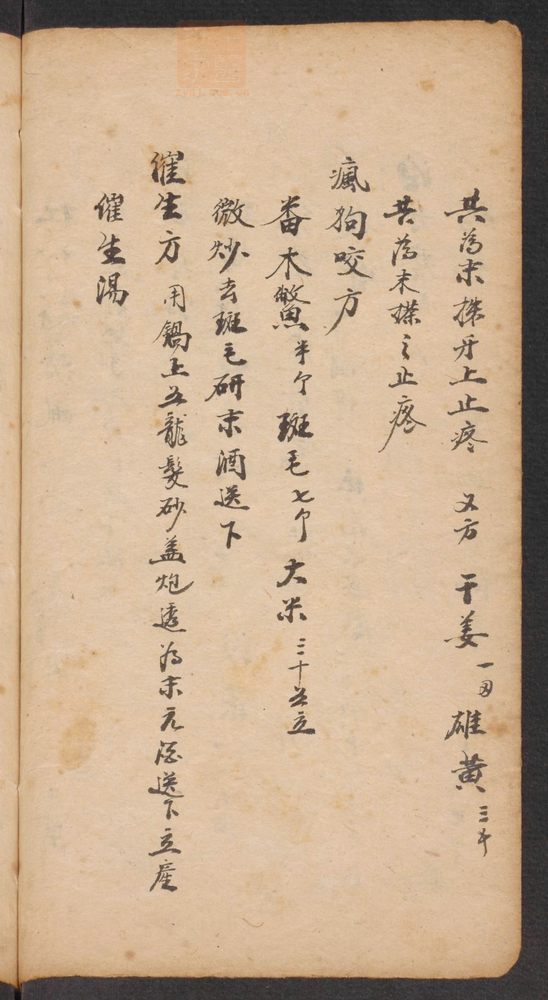 共為末擦牙上止疼 又方 干姜一両 雄黄三千
共為末擦之止疼
瘋狗咬方
番木鱉半个 斑毛七个 大米三十五立
微炒去斑毛研末酒送下
催生方 用鍋上五龍髮砂盖炮透為末元酒送下立産
催生湯